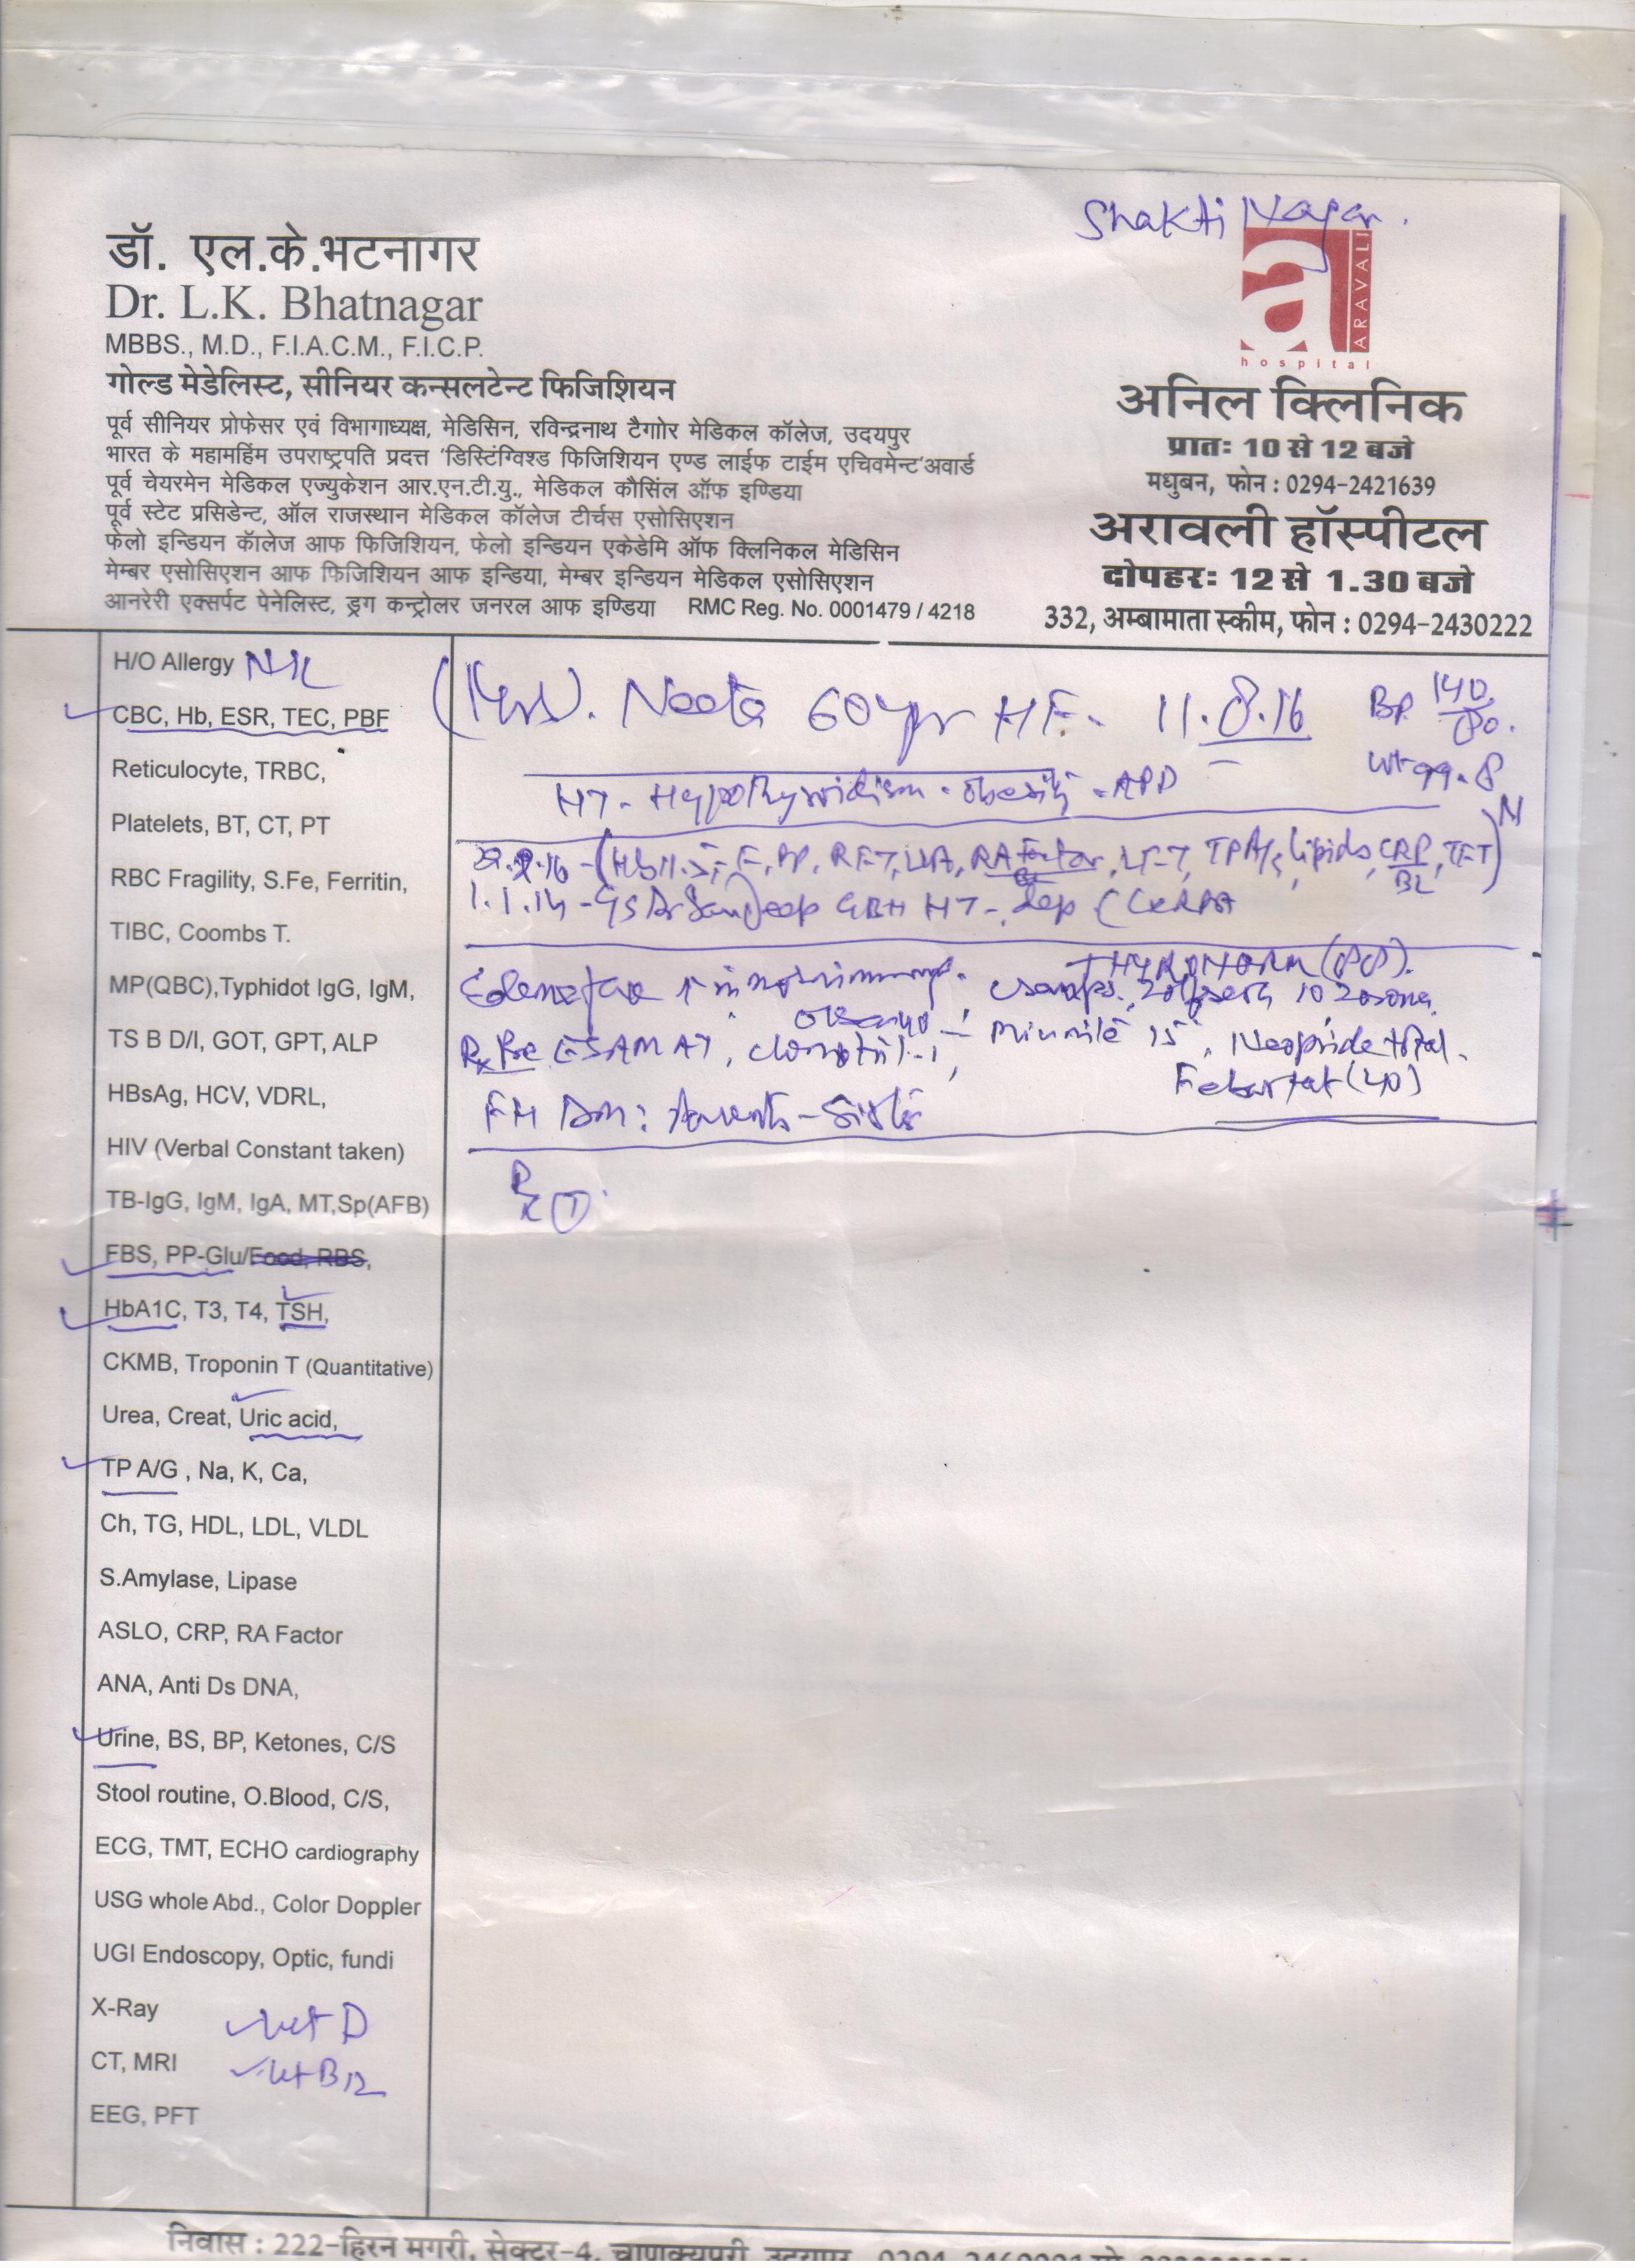 Shakti Nagar.
डॉ. एल.के.भटनागर
Dr. L.K. Bhatnagar
MBBS., M.D., F.I.A.C.M., F.I.C.P.
गोल्ड मेडेलिस्ट, सीनियर कन्सलटेन्ट फिजिशियन
पूर्व सीनियर प्रोफेसर एवं विभागाध्यक्ष, मेडिसिन, रविन्द्रनाथ टैगाोर मेडिकल कॉलेज, उदयपुर
भारत के महामहिंम उपराष्ट्रपति प्रदत्त 'डिस्टिंग्विश्ड फिजिशियन एण्ड लाईफ टाईम एचिवमेन्ट'अवार्ड
पूर्व चेयरमेन मेडिकल एज्युकेशन आर.एन.टी.यु., मेडिकल कौसिंल ऑफ इण्डिया
पूर्व स्टेट प्रसिडेन्ट, ऑल राजस्थान मेडिकल कॉलेज टीर्चस एसोसिएशन
फेलो इन्डियन कॅालेज आफ फिजिशियन, फेलो इन्डियन एकेडेमि ऑफ क्लिनिकल मेडिसिन
मेम्बर एसोसिएशन आफ फिजिशियन आफ इन्डिया, मेम्बर इन्डियन मेडिकल एसोसिएशन
आनरेरी एक्सर्पट पेनेलिस्ट, ड्रग कन्ट्रोलर जनरल आफ इण्डिया RMC Reg. No. 0001479 / 4218
a ARAVALI
hospital
अनिल क्लिनिक
प्रातः 10 से 12 बजे
मधुबन, फोन : 0294-2421639
अरावली हॉस्पीटल
दोपहरः 12 से 1.30 बजे
332, अम्बामाता स्कीम, फोन : 0294-2430222
H/O Allergy Nil
CBC, Hb, ESR, TEC, PBF
Reticulocyte, TRBC,
Platelets, BT, CT, PT
RBC Fragility, S.Fe, Ferritin,
TIBC, Coombs T.
MP(QBC),Typhidot IgG, IgM,
TS B D/I, GOT, GPT, ALP
HBsAg, HCV, VDRL,
HIV (Verbal Constant taken)
TB-IgG, IgM, IgA, MT,Sp(AFB)
FBS, PP-Glu/Food, RBS,
HbA1C, T3, T4, TSH,
CKMB, Troponin T (Quantitative)
Urea, Creat, Uric acid,
TP A/G , Na, K, Ca,
Ch, TG, HDL, LDL, VLDL
S.Amylase, Lipase
ASLO, CRP, RA Factor
ANA, Anti Ds DNA,
Urine, BS, BP, Ketones, C/S
Stool routine, O.Blood, C/S,
ECG, TMT, ECHO cardiography
USG whole Abd., Color Doppler
UGI Endoscopy, Optic, fundi
X-Ray
Vit D
CT, MRI
Vit B12
EEG, PFT
(Mrs). Neeta 60yr HF. 11.8.16 BP 140/80.
Wt 99.8
HT - Hypothyroidism - obesity - APD
RFT, UA, RA Factor, LFT, TP A/G, Lipids, CRP, TFT) N
BL
1.1.14 - Dr Sandeep GBH HT -
Edema face THYRONORM
Neopride total.
Febustat (40)
FH DM: Parents - Sister
Rx
निवास : 222-हिरन मगरी, सेक्टर-4, चाणक्यपुरी, उदयपुर